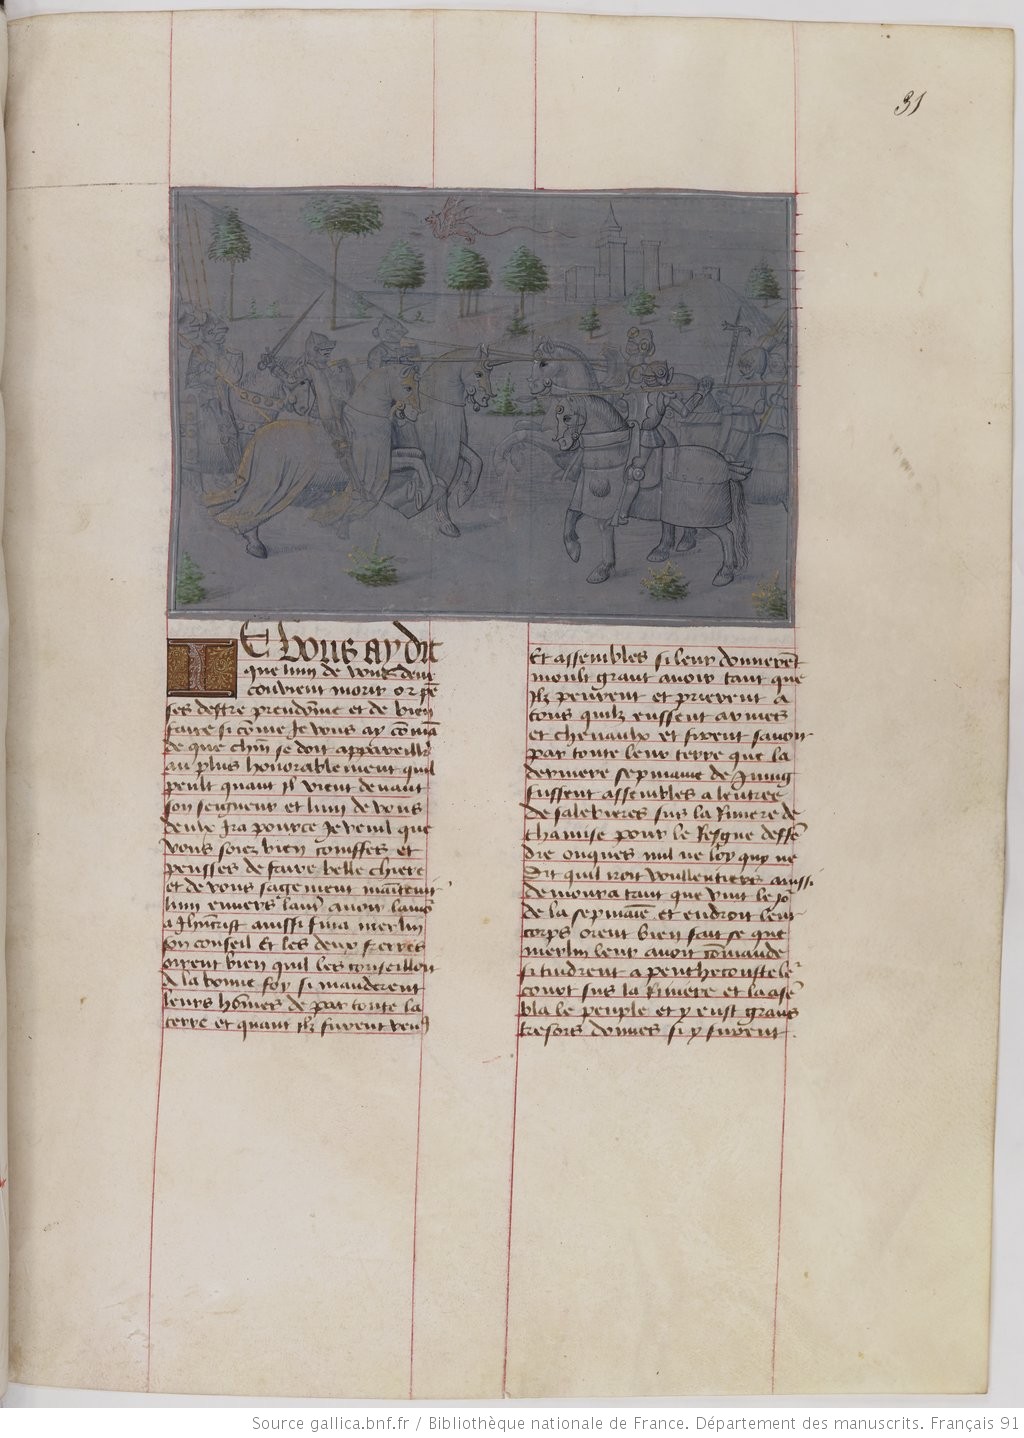 31
IE vous ay dit
que lun de vous deux
couvient morir or pē
ses destre preudōme et de bien
faire si cōme Je vous ay cōmā
de que chūn se doit appareillr
au plus honorablement quil
peult quant jl vient devant
son seigneur et lun de vous
deulx Ira pource Je veuil que
vous soiez bien conffes et
pensses de faire belle chiere
et de vous sagement maintenir
lun envers laut avoir lamō
a Jhūcrist aussi fina merlin
son conseil Et les deux freres
virent bien quil les conseilloit
a la bonne foy si manderent
leurs hōmes de par toute la
terre et quant ilz furent venꝰ
Et assembles si leur donnerēt
moult grant avoir tant que
ilz peurent et prierent a
tous quilz eussent armes
et chevaulx et firent savoir
par toute leur terre que la
derniere sepmaine de Juing
fussent assembles a lentree
de salebieres sus la Riviere de
thamise pour le Resgne deffē
dre onques nul ne loy quy ne
dit quil yroit voullentiers aussi
demoura tant que vint le Jo
de la sepmaīe et endroit leur
corps orent bien fait se que
merlin leur avoit cōmande
si tindrent a penthecouste le
court sus la Riviere et la asē
bla le peuple et y eust grans
tresors donnes si y furent.
Source gallica.bnf.fr / Bibliothèque nationale de France. Département des manuscrits. Français 91